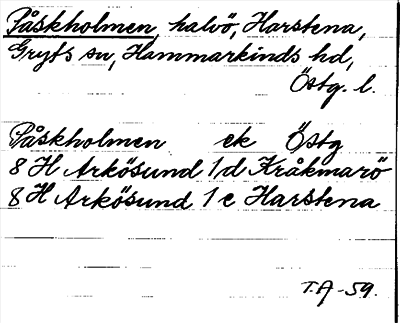 Påskholmen, halvö, Harstena,
Gryts sn, Hammarkinds hd,
Östg. l.
Påskholmen ek Östg
8 H Arkösund 1 d Kråkmarö
8 H Arkösund 1 e Harstena
T.A -59.